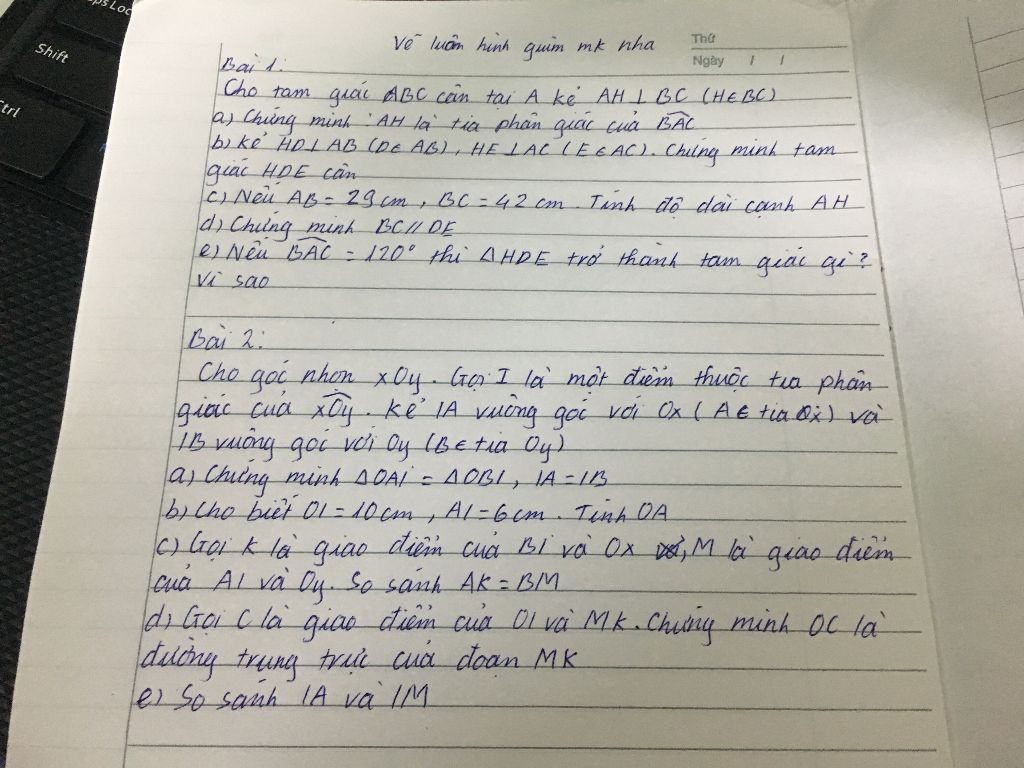 Shift
Ctrl
Vẽ luôn hình giùm mk nha
Thứ
Ngày / /
Bài 1:
Cho tam giác ABC cân tại A kẻ AH ⊥ BC (H∈BC)
a) Chứng minh : AH là tia phân giác của BAC
b) Kẻ HD⊥AB (D∈AB), HE⊥AC (E∈AC). Chứng minh tam
giác HDE cân
c) Nếu AB = 29cm, BC = 42 cm. Tính độ dài cạnh AH
d) Chứng minh BC // DE
e) Nếu BAC = 120° thì ΔHDE trở thành tam giác gì?
Vì sao
Bài 2:
Cho góc nhọn xOy. Gọi I là một điểm thuộc tia phân
giác của xOy. Kẻ IA vuông góc với Ox (A∈ tia Ox) và
IB vuông góc với Oy (B∈ tia Oy)
a) Chứng minh ΔOAI = ΔOBI, IA = IB
b) Cho biết OI = 10cm, AI = 6cm. Tính OA
c) Gọi K là giao điểm của BI và Ox, M là giao điểm
của AI và Oy. So sánh AK = BM
d) Gọi C là giao điểm của OI và MK. Chứng minh OC là
đường trung trực của đoạn MK
e) So sánh IA và IM